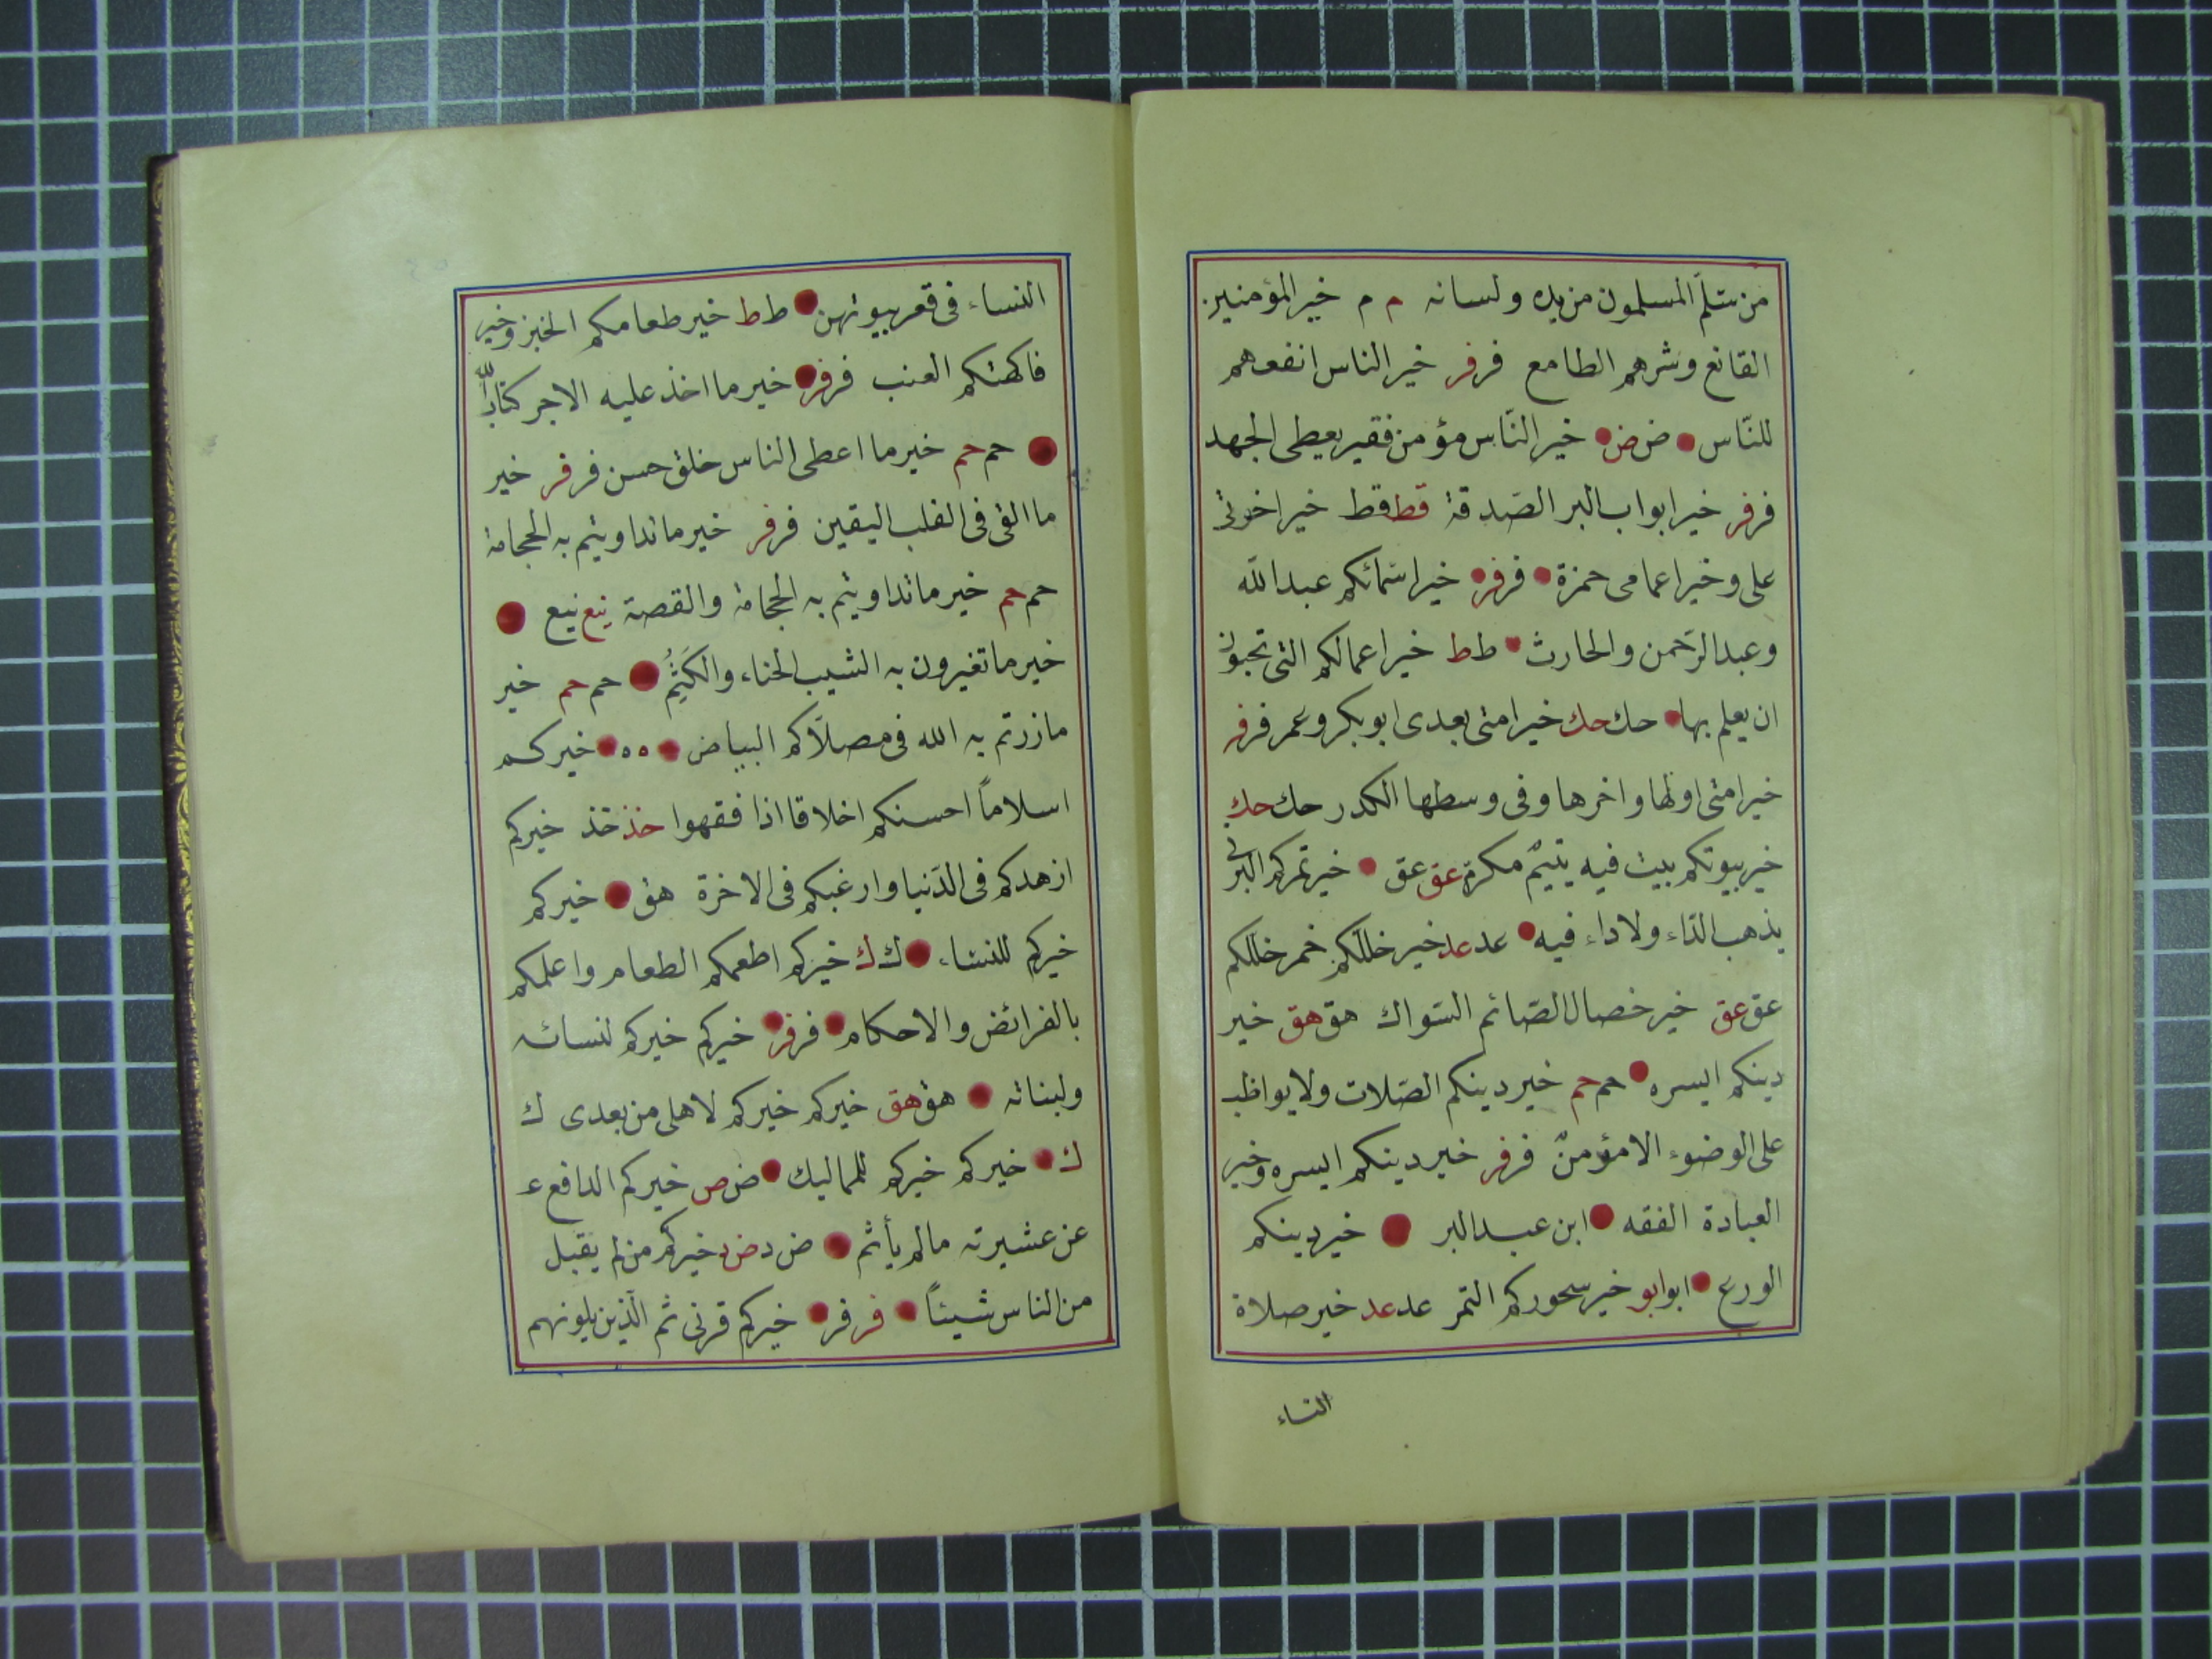 من سلم المسلمون من يده ولسانه م م خير المؤمنين
القانع وشرهم الطامع فر فر خير الناس انفعهم
للنّاس ض ض خير النّاس مؤمن فقير يعطى الجهد
فر فر خير ابواب البر الصّدقة قط قط خير اخوتى
على وخير اعمامى حمزة فر فر خير اسمائكم عبد الله
وعبد الرّحمن والحارث ط ط خير اعمالكم التى تحبون
ان يعلم بها حك حك خير امتى بعدى ابو بكر وعمر فر فر
خير امتى اولها واخرها وفى وسطها الكدر حك حك
خير بيوتكم بيت فيه يتيمٌ مكرم عق عق خير تمركم البرنى
يذهب الدّاء ولا داء فيه عد عد خير خللّكم خمر خللكم
عق عق خير خصال الصّائم السّواك هق هق خير
دينكم ايسره حم حم خير دينكم الصّلات ولا يواظب
على الوضوء الا مؤمنٌ فر فر خير دينكم ايسره وخير
العبادة الفقه ابن عبد البر خير دينكم
الورع ابو ابو خير سحوركم التمر عد عد خير صلاة
النساء
النساء فى قعر بيوتهن ط ط خير طعامكم الخبز وخير
فاكهتكم العنب فر فر خير ما اخذ عليه الاجر كتاب الله
حم حم خير ما اعطى الناس خلق حسن فر فر خير
ما القى فى القلب اليقين فر فر خير ما تداويتم به الحجامة
حم حم خير ما تداويتم به الحجامة والقصة نيع نيع
خير ما تغيرون به الشيب الحناء والكَتَمُ حم حم خير
ما زرتم به الله فى مصلاّكم البياض ه ه خيركم
اسلاماً احسنكم اخلاقا اذا فقهوا خذ خذ خيركم
ازهدكم فى الدّنيا وارغبكم فى الاخرة هق خيركم
خيركم للنساء ك ك خيركم اطعمكم الطعام واعلمكم
بالفرائض والاحكام فر فر خيركم خيركم لنسائه
ولبناته هق هق خيركم خيركم لاهلى من بعدى ك
ك خيركم خيركم للمماليك ض ص خيركم الدافع ع
عن عشيرته ما لم يأثم ض د ض د خيركم من لم يقبل
من الناس شيئاً فر فر خيركم قرنى ثم الّذين يلونهم